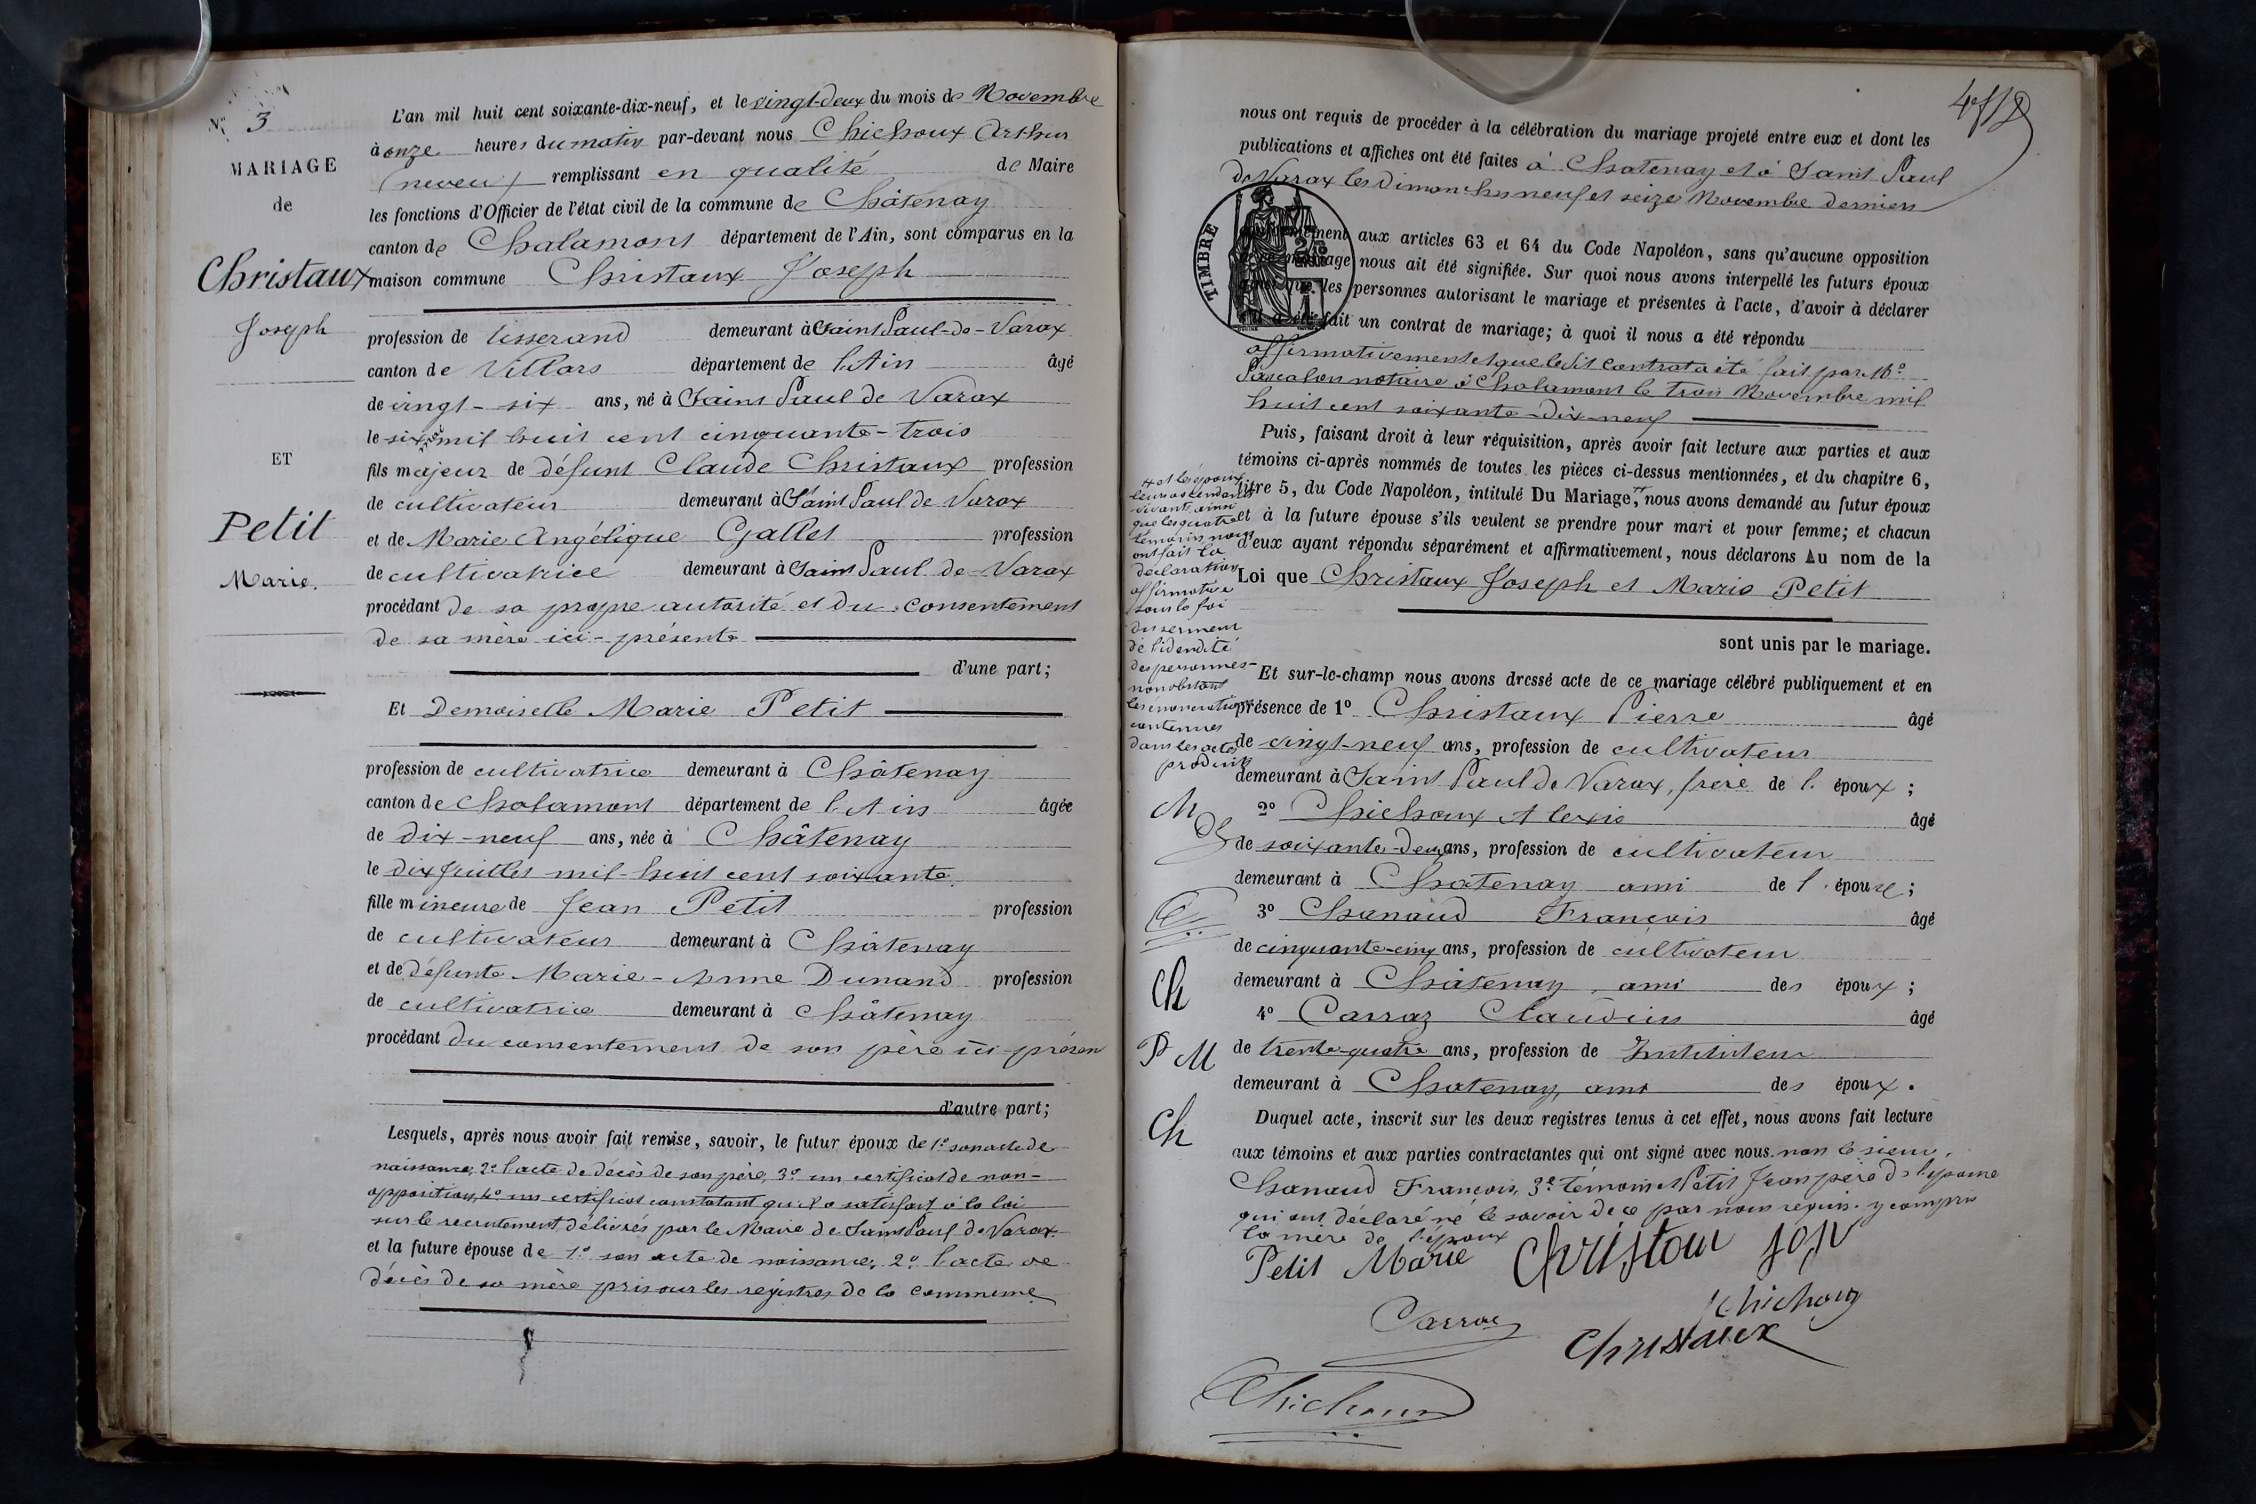 N° 3
MARIAGE
de
Christaux
Joseph
ET
Petit
Marie.
L'an mil huit cent soixante-dix-neuf, et le vingt-deux du mois de Novembre
à onze heures du matin par-devant nous Chichoux Arthur
(neveu) remplissant en qualité de Maire
les fonctions d'Officier de l'état civil de la commune de Châtenay
canton de Chalamont département de l'Ain, sont comparus en la
maison commune Christaux Joseph
profession de tisserand demeurant à Saint Paul-de-Varax
canton de Villars département de l'Ain âgé
de vingt-six ans, né à Saint Paul de Varax
le six mil huit cent cinquante-trois
fils majeur de défunt Claude Christaux profession
de cultivateur demeurant à Saint Paul de Varax
et de Marie Angélique Gallet profession
de cultivatrice demeurant à Saint Paul de Varax
procédant de sa propre autorité et du consentement
de sa mère ici-présente
d'une part;
Et Demoiselle Marie Petit
profession de cultivatrice demeurant à Châtenay
canton de Chalamont département de l'Ain âgée
de dix-neuf ans, née à Châtenay
le dix Juillet mil-huit cent soixante
fille mineure de Jean Petit profession
de cultivateur demeurant à Châtenay
et de défunte Marie-Anne Dunand profession
de cultivatrice demeurant à Châtenay
procédant du consentement de son père ici-présen
d'autre part;
Lesquels, après nous avoir fait remise, savoir, le futur époux de 1° son acte de
naissance, 2° l'acte de décès de son père, 3° un certificat de non-
opposition, 4° un certificat constatant qu'il a satisfait à la loi
sur le recrutement délivrés par le Maire de Saint Paul de Varax
et la future épouse de 1° son acte de naissance, 2° l'acte de
décès de sa mère pris sur les registres de la commune
nous ont requis de procéder à la célébration du mariage projeté entre eux et dont les
publications et affiches ont été faites à Chatenay et à Saint Paul
de Varax les dimanches neuf et seize Novembre derniers
TIMBRE
aux articles 63 et 64 du Code Napoléon, sans qu'aucune opposition
mariage nous ait été signifiée. Sur quoi nous avons interpellé les futurs époux
que les personnes autorisant le mariage et présentes à l'acte, d'avoir à déclarer
fait un contrat de mariage; à quoi il nous a été répondu
affirmativement et que le dit contrat a été fait par Me
Pascalon notaire à Chalamont le trois Novembre mil
huit cent soixante-dix-neuf
Puis, faisant droit à leur réquisition, après avoir fait lecture aux parties et aux
témoins ci-après nommés de toutes les pièces ci-dessus mentionnées, et du chapitre 6,
titre 5, du Code Napoléon, intitulé Du Mariage, nous avons demandé au futur époux
et à la future épouse s'ils veulent se prendre pour mari et pour femme; et chacun
d'eux ayant répondu séparément et affirmativement, nous déclarons Au nom de la
Loi que Christaux Joseph et Marie Petit
sont unis par le mariage.
et les époux
leurs ascendants
vivants ainsi
que les quatre
témoins nous
ont fait la
déclaration
affirmative
sous la foi
du serment
de l'idendité
des personnes
nonobstant
les énonciations
contenues
dans les actes
produits
Et sur-le-champ nous avons dressé acte de ce mariage célébré publiquement et en
présence de 1° Christaux Pierre âgé
de vingt-neuf ans, profession de cultivateur
demeurant à Saint Paul de Varax, frère de l. époux;
2° Chichoux Alexis âgé
de soixante-deux ans, profession de cultivateur
demeurant à Chatenay ami de l. épouse;
3° Chanaud François âgé
de cinquante-cinq ans, profession de cultivateur
demeurant à Châtenay, ami des époux;
4° Carraz Claudius âgé
de trente-quatre ans, profession de Instituteur
demeurant à Chatenay, ami des époux.
Duquel acte, inscrit sur les deux registres tenus à cet effet, nous avons fait lecture
aux témoins et aux parties contractantes qui ont signé avec nous non le sieur
Chanaud François, 3e témoin et Petit Jean père de l'épouse
qui ont déclaré ne le savoir de ce par nous requis. y compris
la mère de l'époux
Ch
P M
Ch
Petit Marie Christau
Carraz Chichoux
Christaux
Chichoux